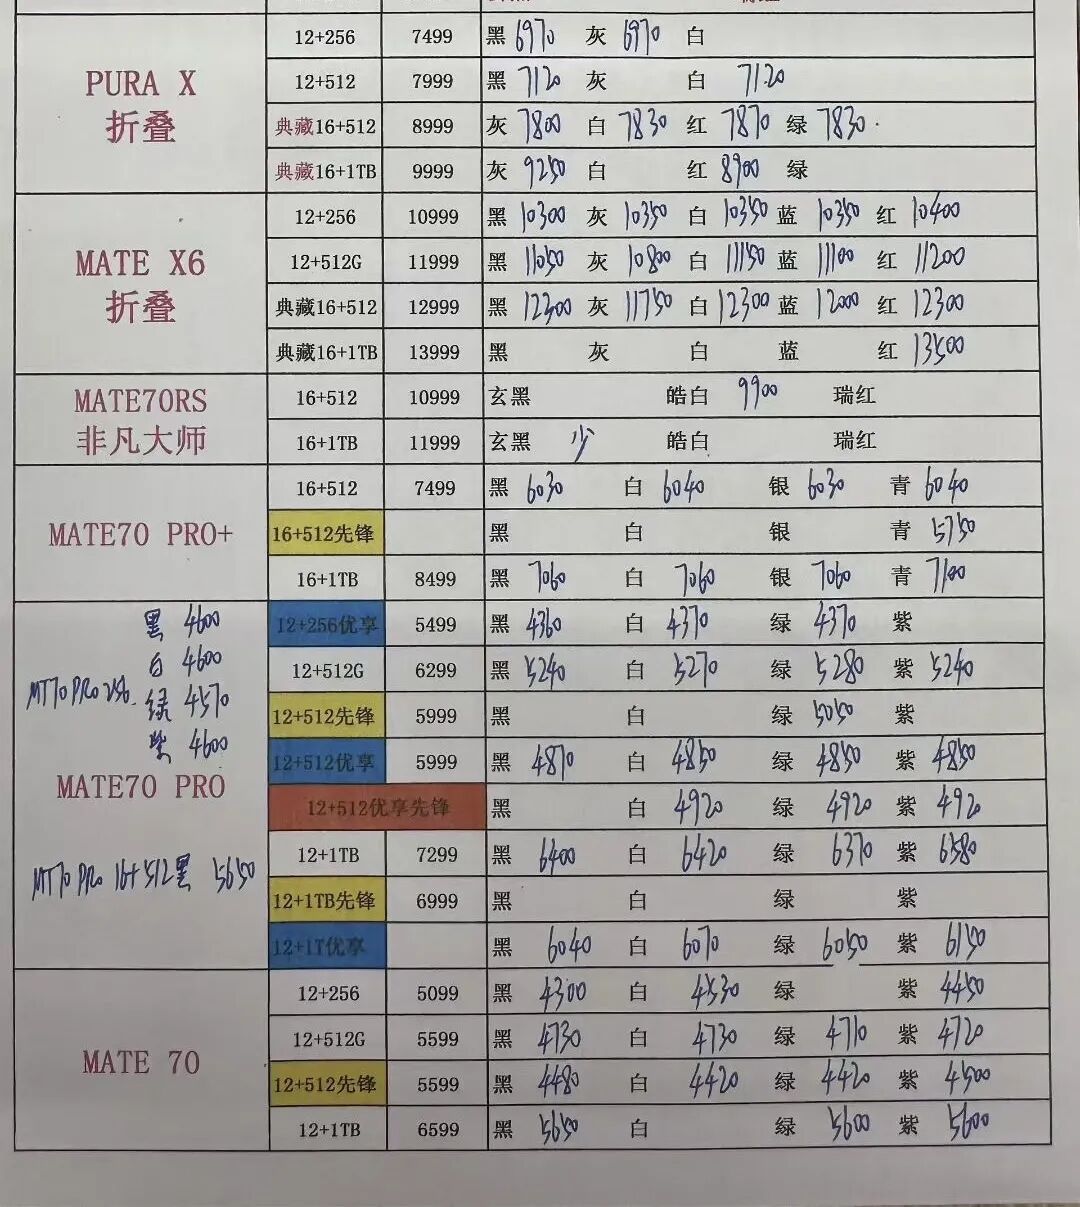 PURA X
折叠
12+256 7499 黑 6970 灰 6970 白
12+512 7999 黑 7120 灰 白 7120
典藏16+512 8999 灰 7800 白 7830 红 7870 绿 7830
典藏16+1TB 9999 灰 9250 白 红 8900 绿
MATE X6
折叠
12+256 10999 黑 10300 灰 10350 白 10350 蓝 10350 红 10400
12+512G 11999 黑 11050 灰 10800 白 11150 蓝 11100 红 11200
典藏16+512 12999 黑 12300 灰 11750 白 12300 蓝 12000 红 12300
典藏16+1TB 13999 黑 灰 白 蓝 红 13500
MATE70RS
非凡大师
16+512 10999 玄黑 皓白 9900 瑞红
16+1TB 11999 玄黑 少 皓白 瑞红
MATE70 PRO+
16+512 7499 黑 6030 白 6040 银 6030 青 6040
16+512先锋 黑 白 银 青 5750
16+1TB 8499 黑 7060 白 7060 银 7060 青 7100
黑 4600
白 4600
MT70 PRO 256 绿 4570
紫 4600
MATE70 PRO
MT70 PRO 16+512黑 5650
12+256优享 5499 黑 4360 白 4370 绿 4370 紫
12+512G 6299 黑 5240 白 5270 绿 5280 紫 5240
12+512先锋 5999 黑 白 绿 5050 紫
12+512优享 5999 黑 4870 白 4850 绿 4850 紫 4850
12+512优享先锋 黑 白 4920 绿 4920 紫 4920
12+1TB 7299 黑 6400 白 6420 绿 6370 紫 6380
12+1TB先锋 6999 黑 白 绿 紫
12+1T优享 黑 6040 白 6070 绿 6050 紫 6150
MATE 70
12+256 5099 黑 4300 白 4530 绿 紫 4450
12+512G 5599 黑 4730 白 4730 绿 4710 紫 4720
12+512先锋 5599 黑 4480 白 4420 绿 4420 紫 4500
12+1TB 6599 黑 5650 白 绿 5600 紫 5600